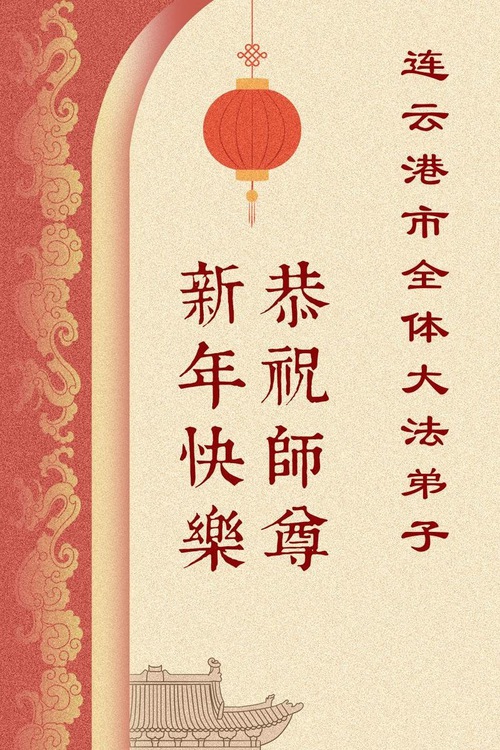 连云港市全体大法弟子
恭祝師尊
新年快樂